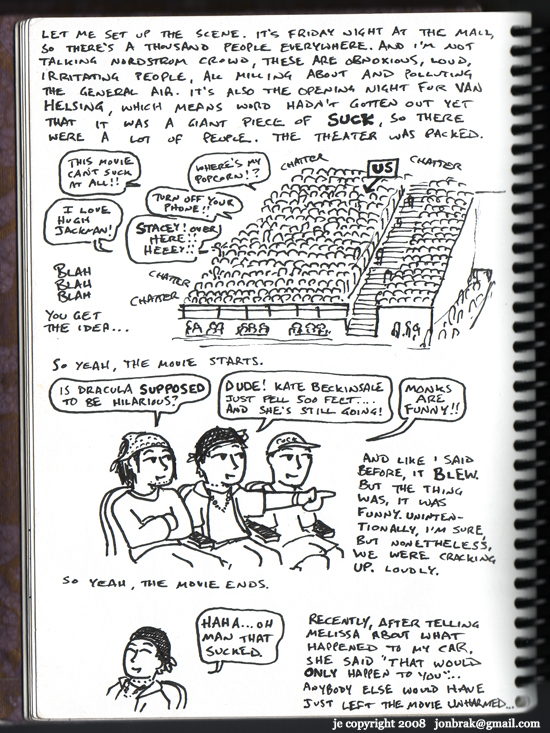 LET ME SET UP THE SCENE. IT'S FRIDAY NIGHT AT THE MALL,
SO THERE'S A THOUSAND PEOPLE EVERYWHERE. AND I'M NOT
TALKING NORDSTROM CROWD, THESE ARE OBNOXIOUS, LOUD,
IRRITATING PEOPLE, ALL MILLING ABOUT AND POLLUTING
THE GENERAL AIR. IT'S ALSO THE OPENING NIGHT FOR VAN
HELSING, WHICH MEANS WORD HADN'T GOTTEN OUT YET
THAT IT WAS A GIANT PIECE OF SUCK, SO THERE
WERE A LOT OF PEOPLE. THE THEATER WAS PACKED.
THIS MOVIE
CAN'T SUCK
AT ALL!!
WHERE'S MY
POPCORN!?
CHATTER
US
CHATTER
I LOVE
HUGH
JACKMAN!
TURN OFF YOUR
PHONE!!
STACEY! OVER
HERE!!
HEEEY!!
BLAH
BLAH
BLAH
CHATTER
CHATTER
YOU GET
THE IDEA...
SO YEAH, THE MOVIE STARTS.
IS DRACULA SUPPOSED
TO BE HILARIOUS?
DUDE! KATE BECKINSALE
JUST FELL 500 FEET...
AND SHE'S STILL GOING!
MONKS
ARE
FUNNY!!
AND LIKE I SAID
BEFORE, IT BLEW.
BUT THE THING
WAS, IT WAS
FUNNY. UNINTEN-
TIONALLY, I'M SURE,
BUT NONETHELESS,
WE WERE CRACKING
UP. LOUDLY.
SO YEAH, THE MOVIE ENDS.
HAHA...OH
MAN THAT
SUCKED.
RECENTLY, AFTER TELLING
MELISSA ABOUT WHAT
HAPPENED TO MY CAR,
SHE SAID "THAT WOULD
ONLY HAPPEN TO YOU"...
ANYBODY ELSE WOULD HAVE
JUST LEFT THE MOVIE UNHARMED...
je copyright 2008 jonbrak@gmail.com